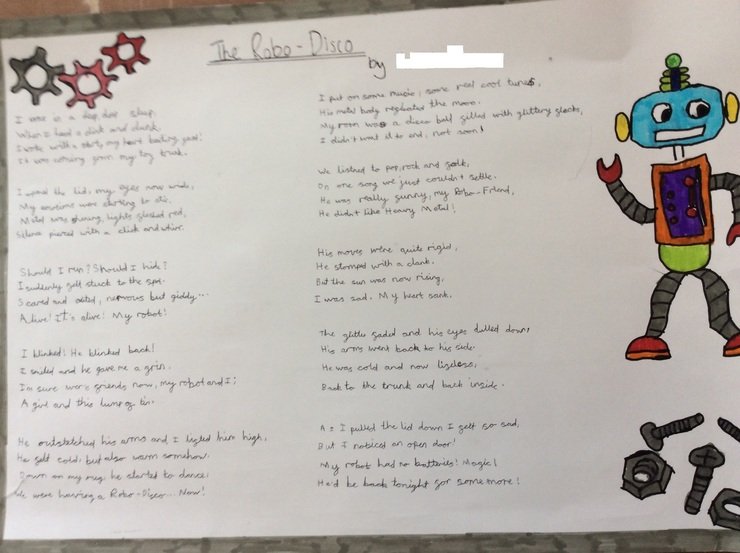 The Robo-Disco
by
I was in a deep, deep sleep,
When I heard a clink and clunk.
I woke with a start, my heart beating fast!
It was coming from my toy trunk.
I opened the lid, my eyes now wide,
My emotions were starting to stir.
Metal was shining, lights flashed red,
Silence pierced with a click and whirr.
Should I run? Should I hide?
I suddenly felt stuck to the spot.
Scared and excited, nervous but giddy...
Alive! It's alive! My robot!
I blinked! He blinked back!
I smiled and he gave me a grin.
I'm sure we're friends now, my robot and I;
A girl and this lump of tin.
He outstretched his arms and I lifted him high,
He felt cold, but also warm somehow.
Down on my rug, he started to dance;
We were having a Robo-Disco... Now!
I put on some music, some real cool tunes,
His metal body reflected the moon.
My room was a disco ball filled with glittery flecks,
I didn't want it to end, not soon!
We listned to pop, rock and folk,
On one song we just couldn't settle.
He was really funny, my Robo-Friend,
He didn't like Heavy Metal!
His moves were quite rigid,
He stomped with a clank.
But the sun was now rising,
I was sad. My heart sank.
The glitter faded and his eyes dulled down,
His arms went back to his side.
He was cold and now lifeless,
Back to the trunk and back inside.
As I pulled the lid down I felt so sad,
But I noticed an open door!
My robot had no batteries! Magic!
He'd be back tonight for some more!